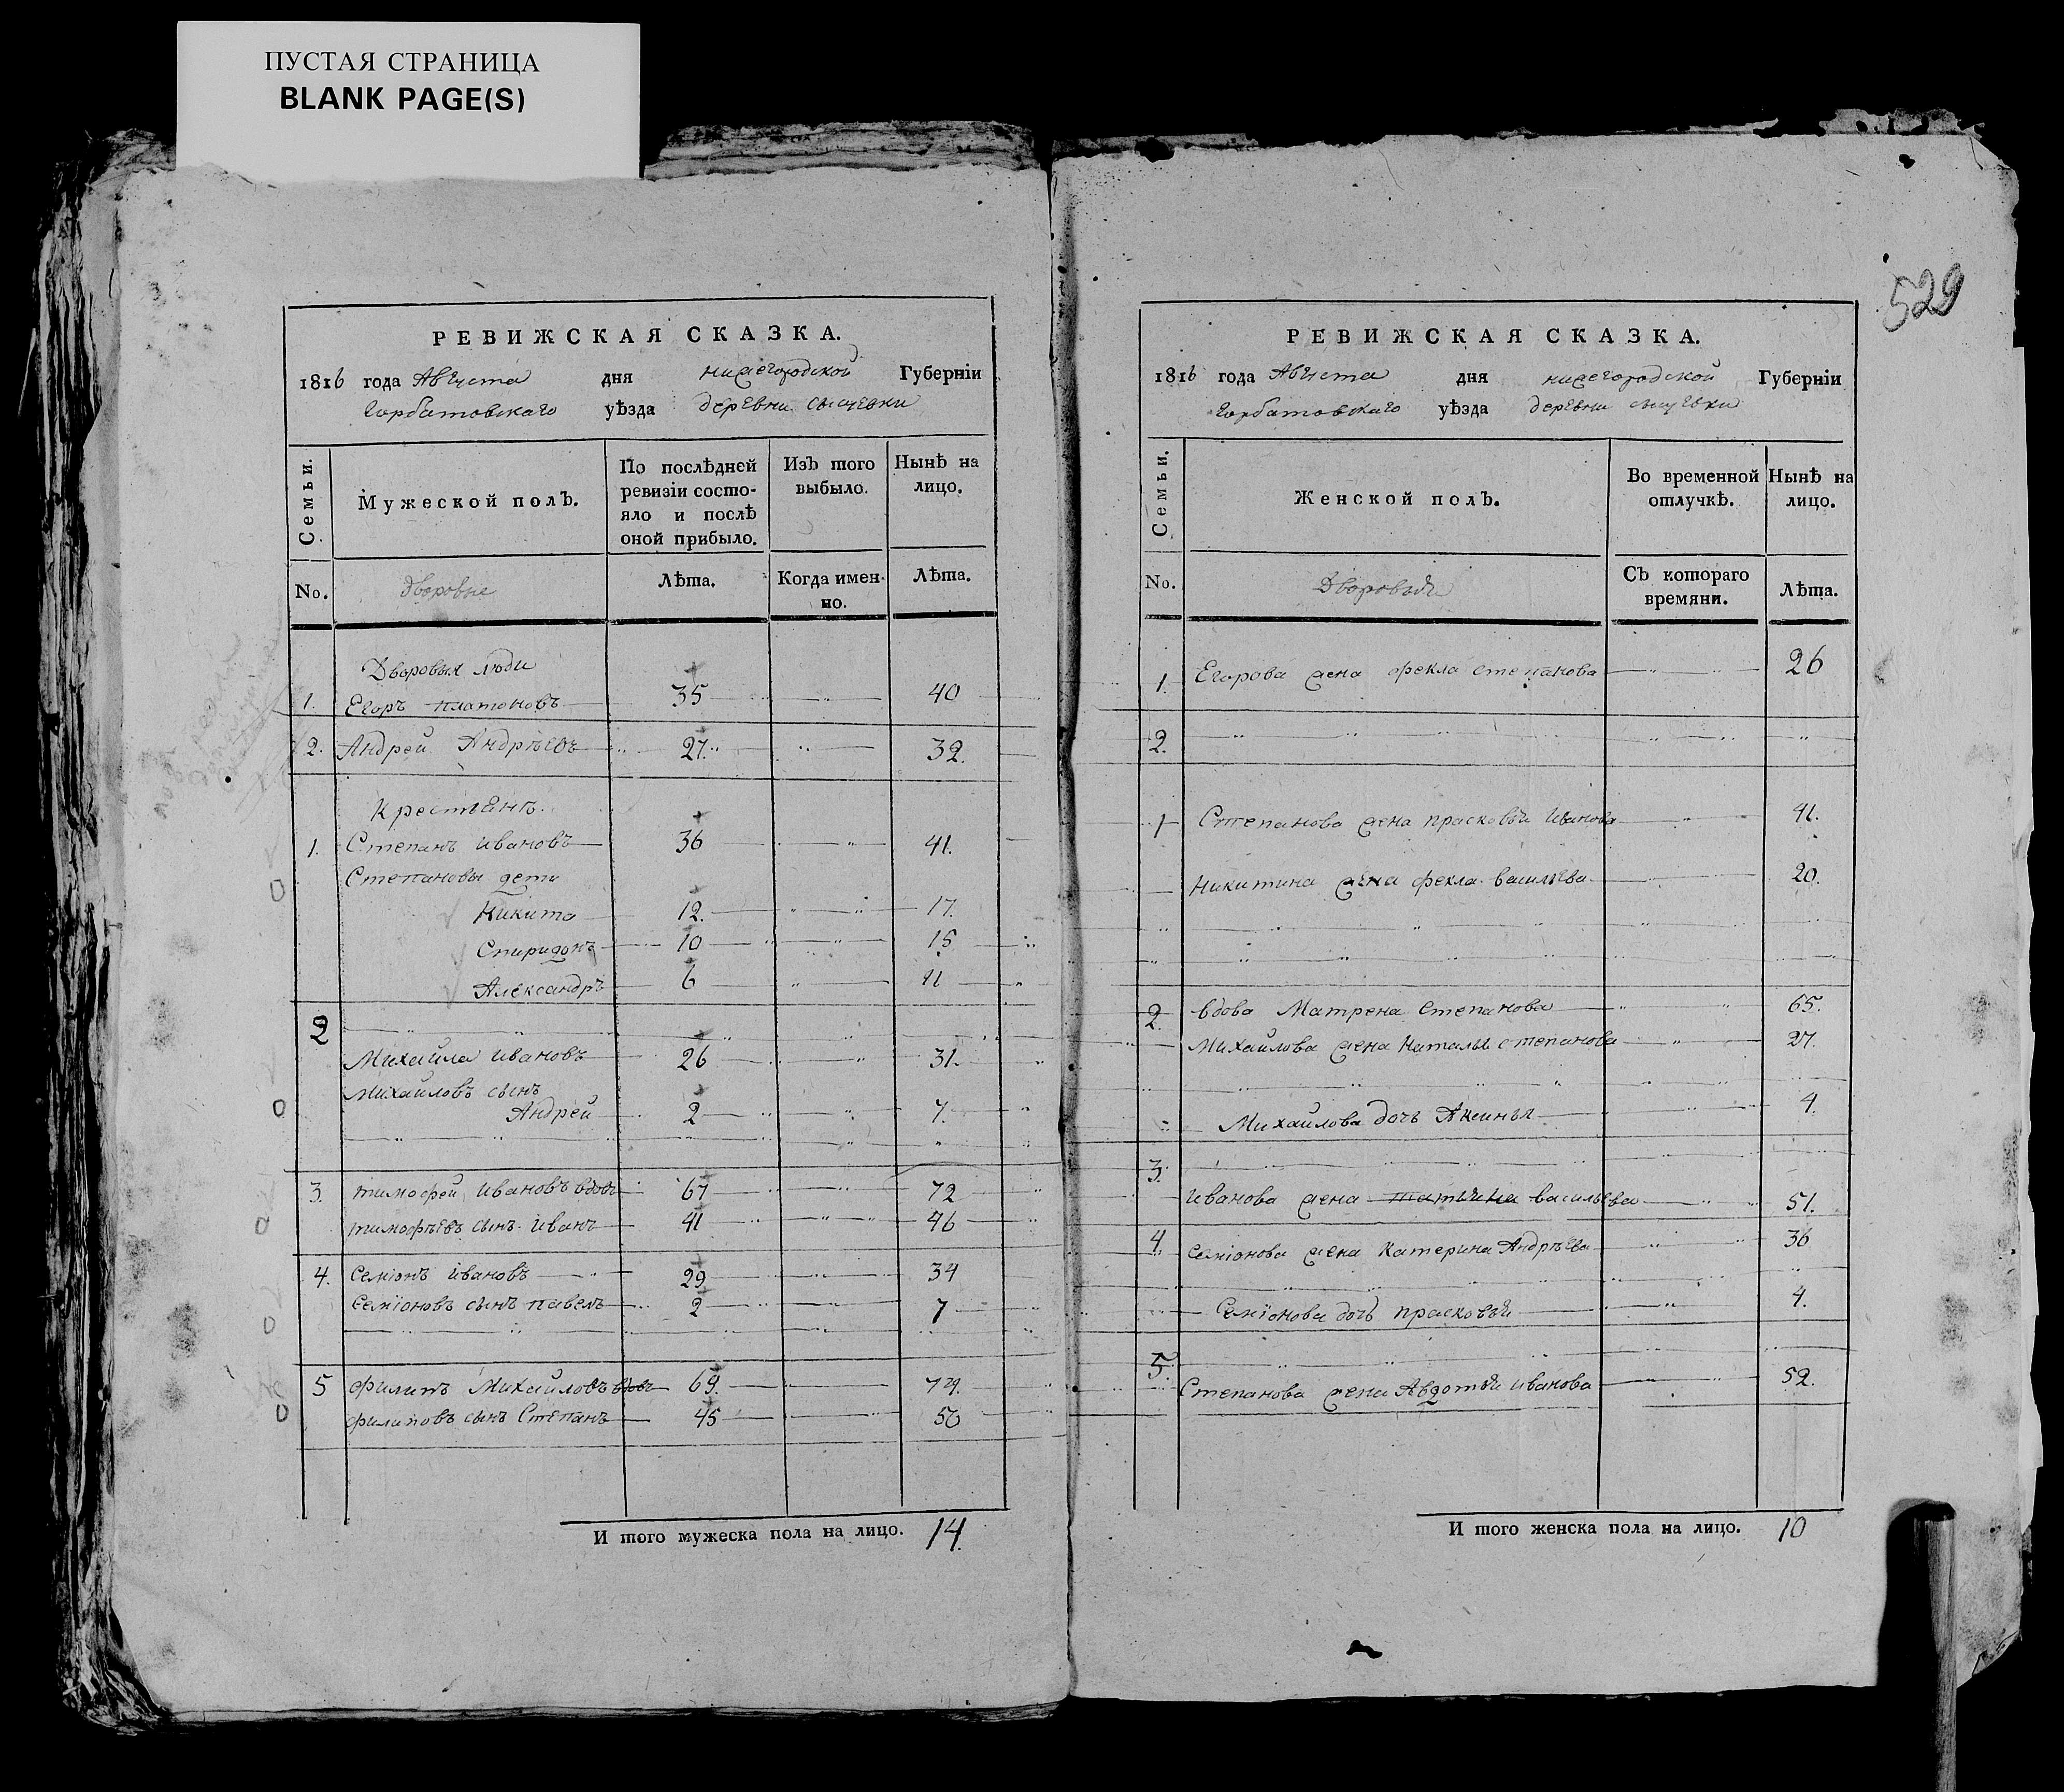 ПУСТАЯ СТРАНИЦА
BLANK PAGE(S)
РЕВИЖСКАЯ СКАЗКА.
1816 года Августа дня нижегородской Губерніи
горбатовскаго уѣзда деревни
Семьи.
Мужеской полъ.
По послѣдней ревизіи состо-
яло и послѣ
оной прибыло.
Изъ того выбыло.
Нынѣ на лицо.
No. Дворовые Лѣта. Когда имен-
но. Лѣта.
Дворовыя люди
1. Егоръ платоновъ 35 40
2. Андрей Андрѣевъ 27. 32.
Крестьянъ.
1. Степанъ ивановъ 36 41.
Степановы дети
Никита 12. 17.
Спиридонъ 10 15
Александръ 6 11
2
Михайла ивановъ 26 31.
михайловъ сынъ
Андрей 2 7.
3. тимофей ивановъ вдовъ 67 72
тимофѣевъ сынъ иванъ 41 46
4. Семіонъ ивановъ 29 34
Семіоновъ сынъ павелъ 2 7
5 филипъ Михайловъ вдовъ 69. 74.
филиповъ сынъ Степанъ 45 50
И того мужеска пола на лицо. 14.
529
РЕВИЖСКАЯ СКАЗКА.
1816 года Августа дня нижегородской Губерніи
горбатовскаго уѣзда деревни
Семьи.
Женской полъ.
Во временной отлучкѣ.
Нынѣ на лицо.
No. Дворовыя Съ котораго времяни. Лѣта.
1. Егорова жена фекла степанова 26
2.
1 Степанова жена прасковья Иванова 41.
Никитина жена фекла васильева 20.
2. вдова Матрена степанова 65.
Михайлова жена Наталья степанова 27.
Михайлова дочь Аксинья 4.
3.
иванова жена татьяна васильева 51.
4. семіонова жена Катерина Андрѣева 36
Семіонова дочь прасковья 4.
5.
Степанова жена Авдотья иванова 52.
И того женска пола на лицо. 10